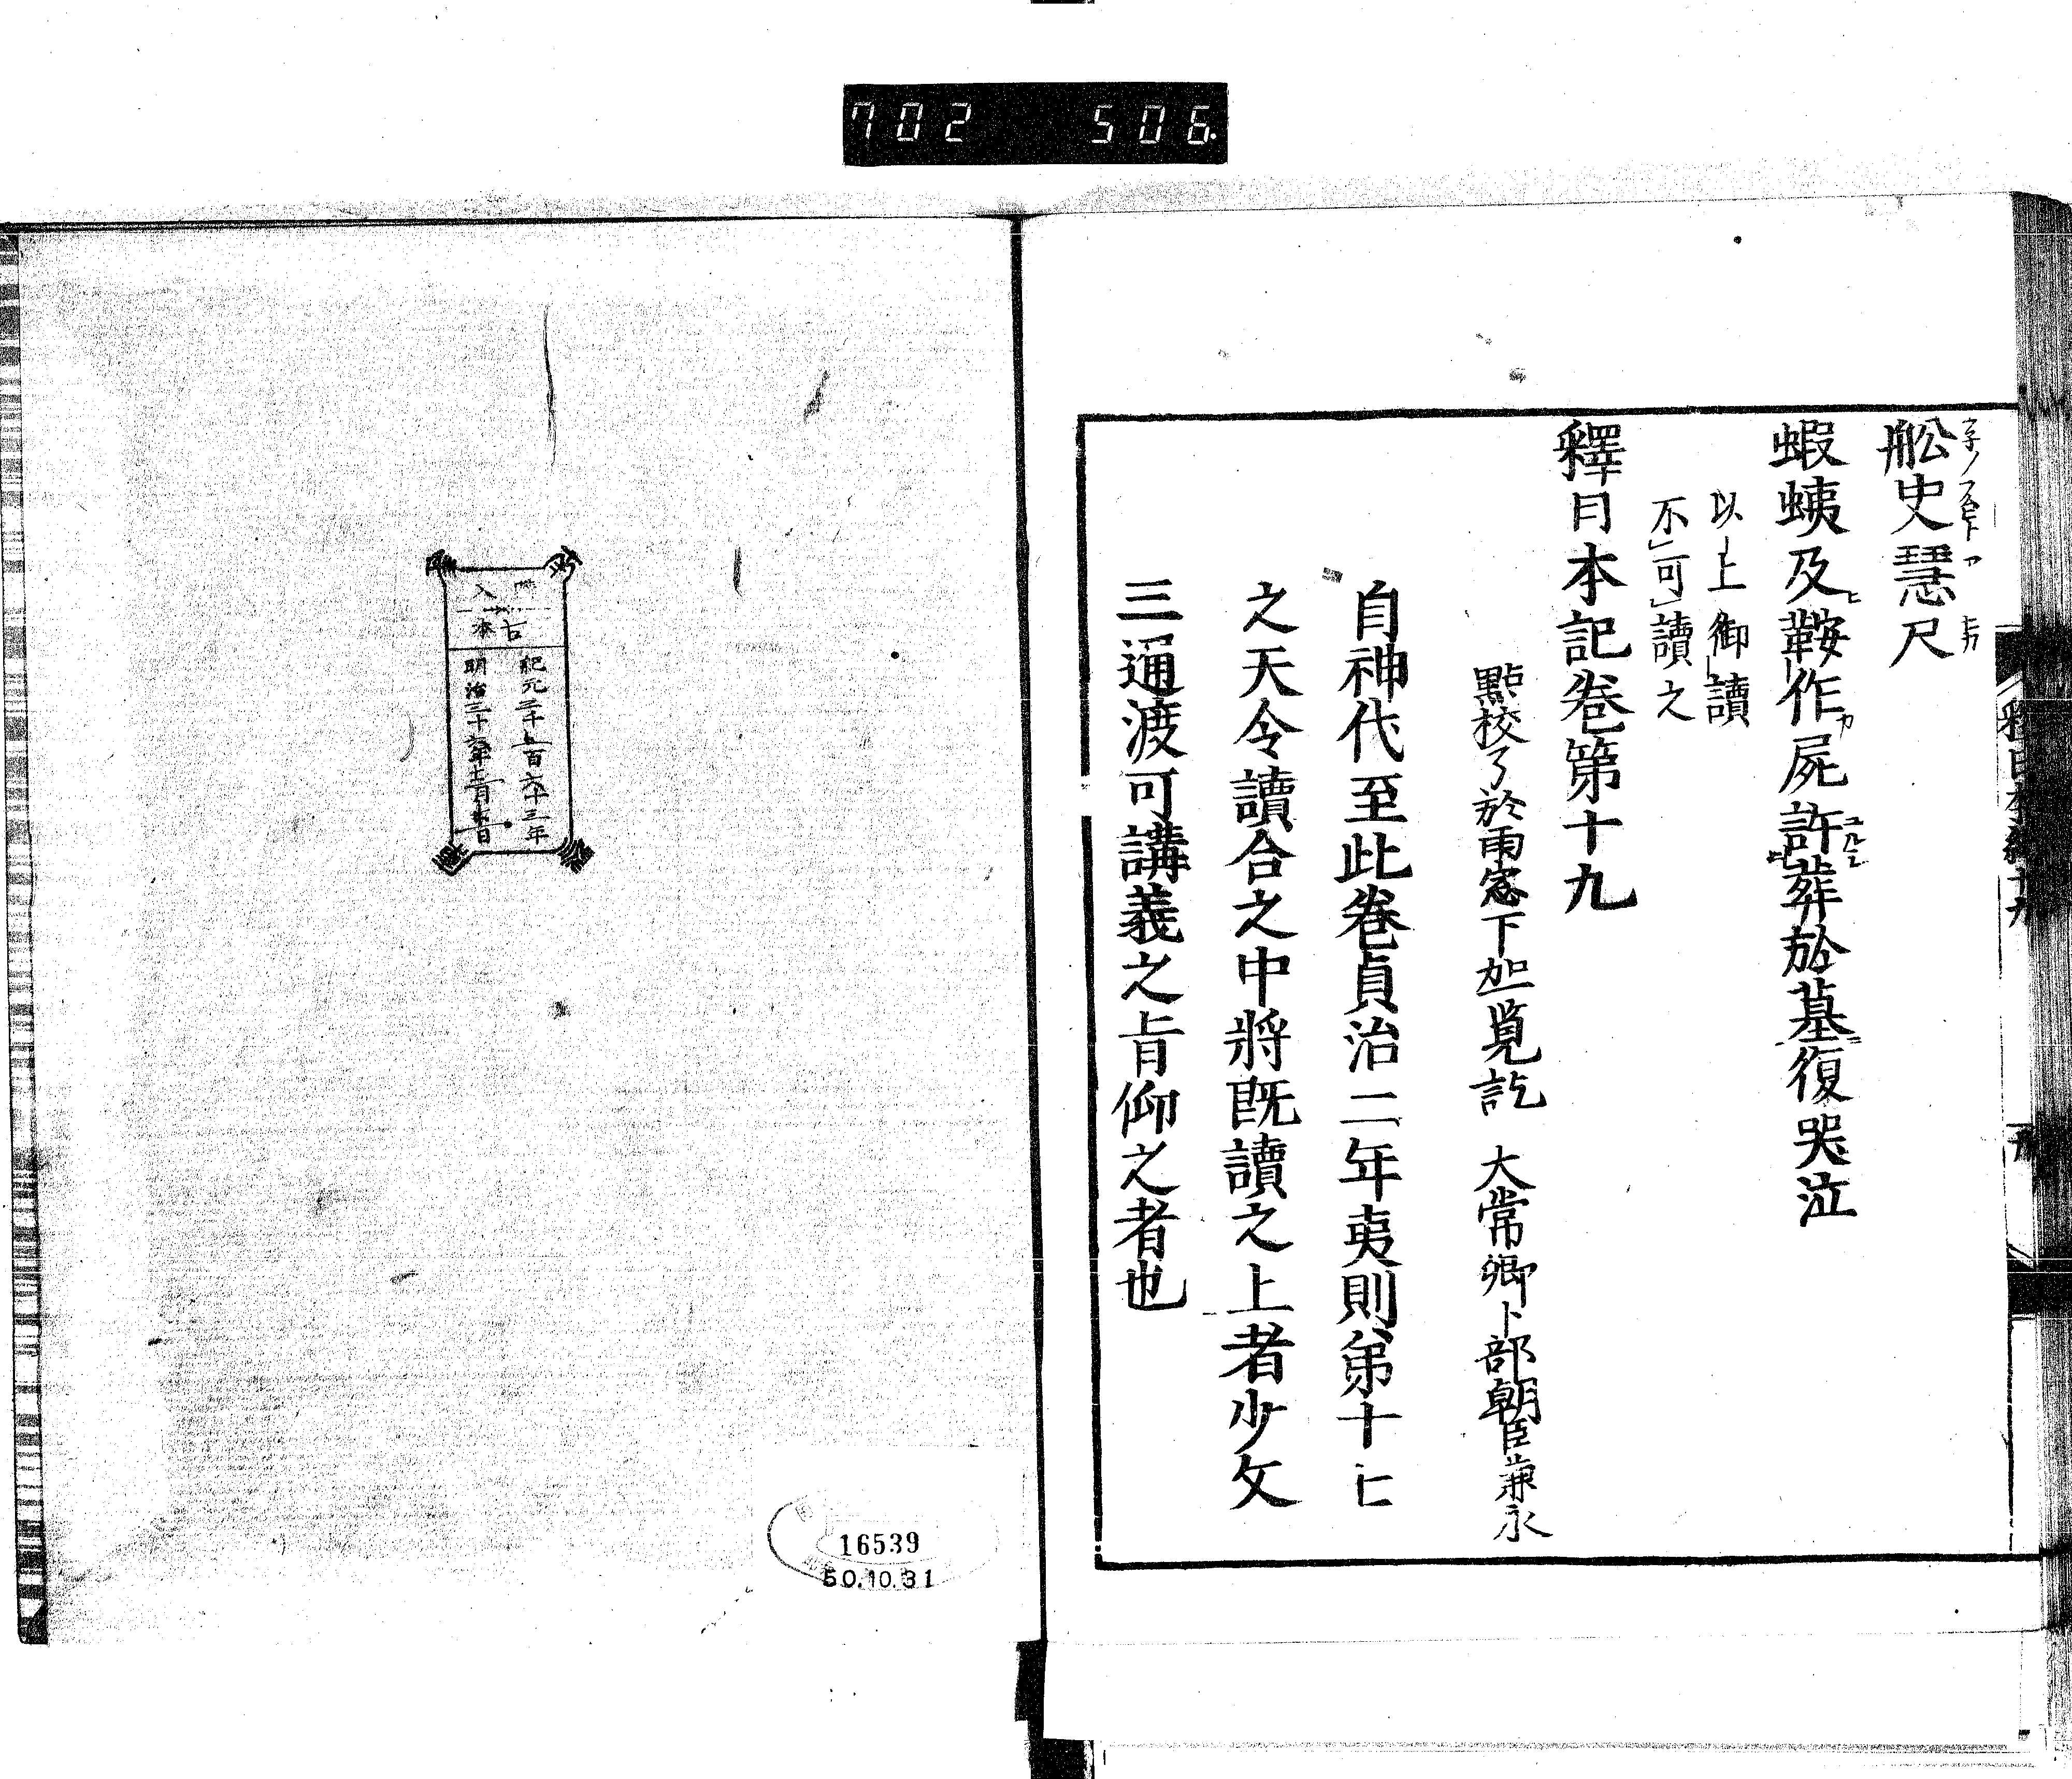 702 506
舩史慧尺
蝦蛦及鞍作屍許葬於墓復哭泣
以上御讀
不可讀之
釋日本記卷第十九
點校了於雨窓下加一覧訖 大常卿卜部朝臣兼永
自神代至此卷貞治二年夷則第十七
之天令讀合之中將既讀之上者少々
三通渡可講義之旨仰之者也
紀元二千五百六十三年
16539
50.10.31